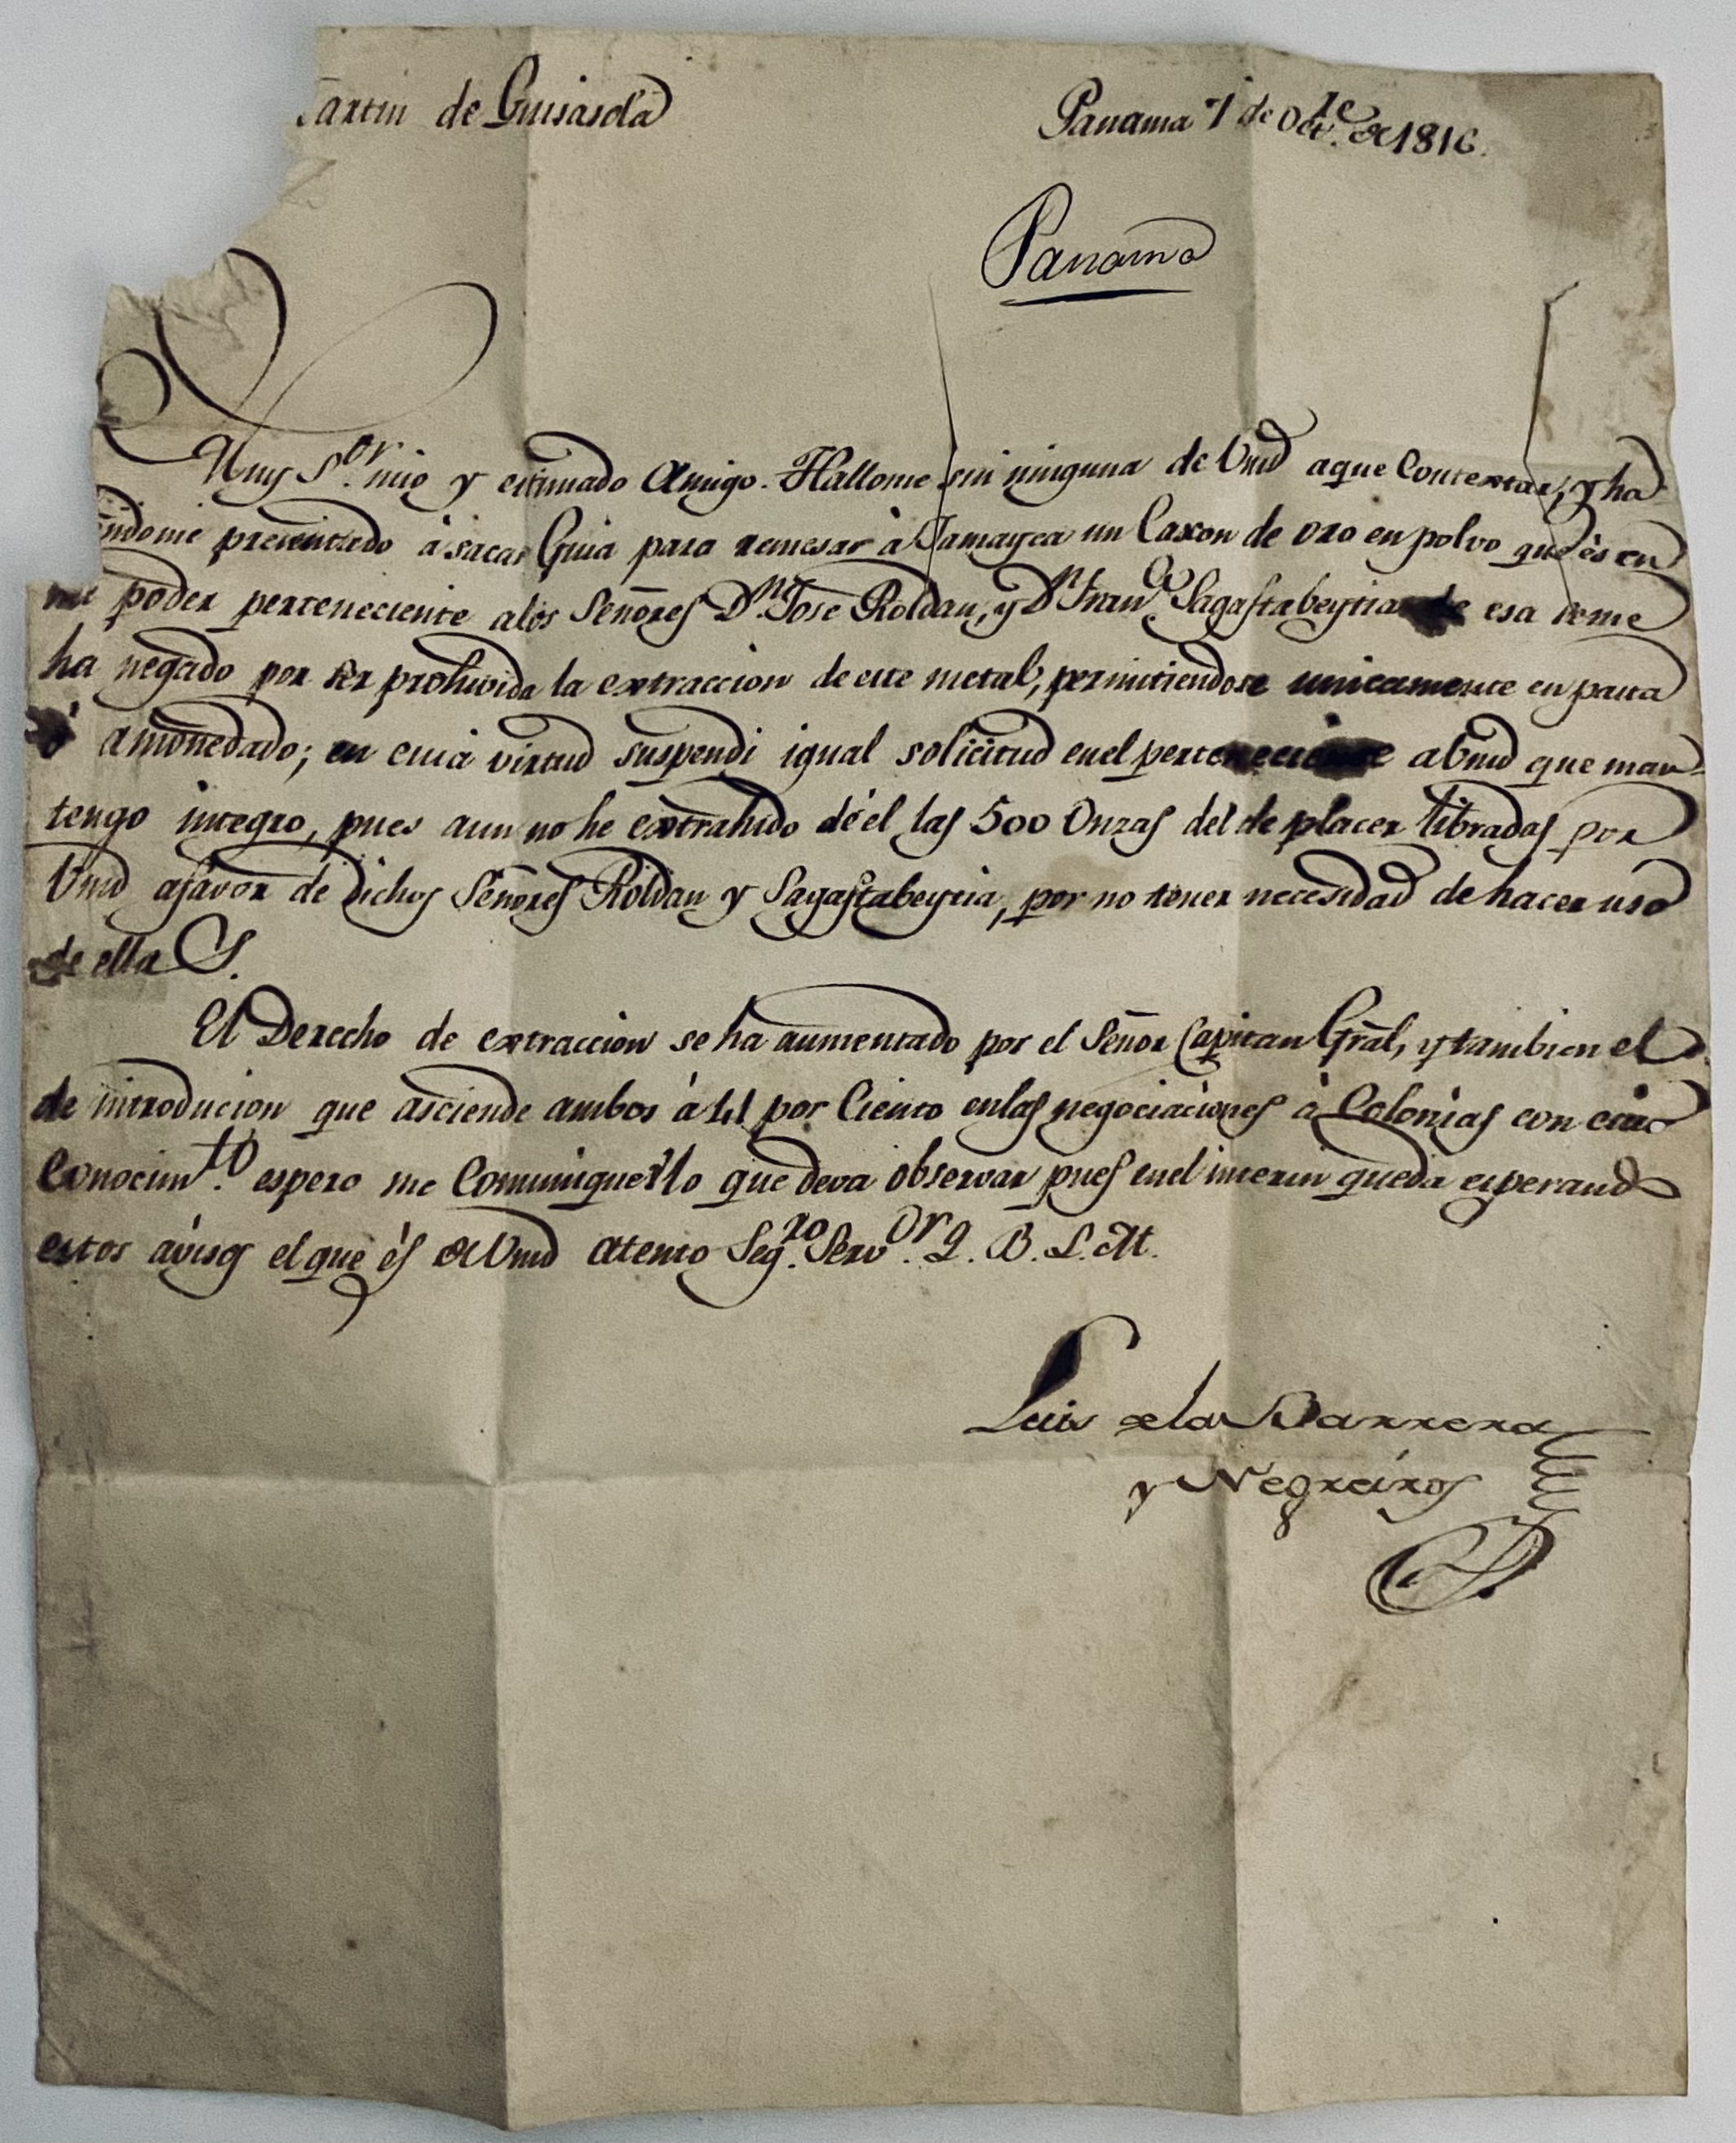 artin de Guisasola
Panama 7 de Oct.re de 1816.
Panama
Muy S.or mio y estimado Amigo. Hallome sin ninguna de Vmd aque Contextar, y ha
endome presentado à sacar Guia para remesar à Jamayca un Caxon de oro en polvo que ès en
mi poder perteneciente alos Señores D.n Jose Roldan, y D.n Fran.co Sagastabeytia de esa seme
ha negado por ser prohivida la extraccion de este metal, permitiendose unicamente en pasta
ò amonedado; en cuia virtud suspendi igual solicitud enel perteneciente aVmd que man
tengo integro, pues aun no he extrahido de èl las 500 Onzas del de placer libradas por
Vmd afavor de dichos Señores Roldan y Sagastabeytia, por no tener necesidad de hacer uso
de ella S.
El Derecho de extraccion se ha aumentado por el Señor Capitan Gral, y tambien el
de introducion que asciende ambos á 41 por Ciento enlas negociaciones à Colonias con cuio
Conocim.to espero me Comunique lo que deva observar pues enel interin queda esperando
estos avisos el que és de Vmd Atento Seg.ro Serv.or Q. B. S. M.
Luis dela Barrera
y Negreiros